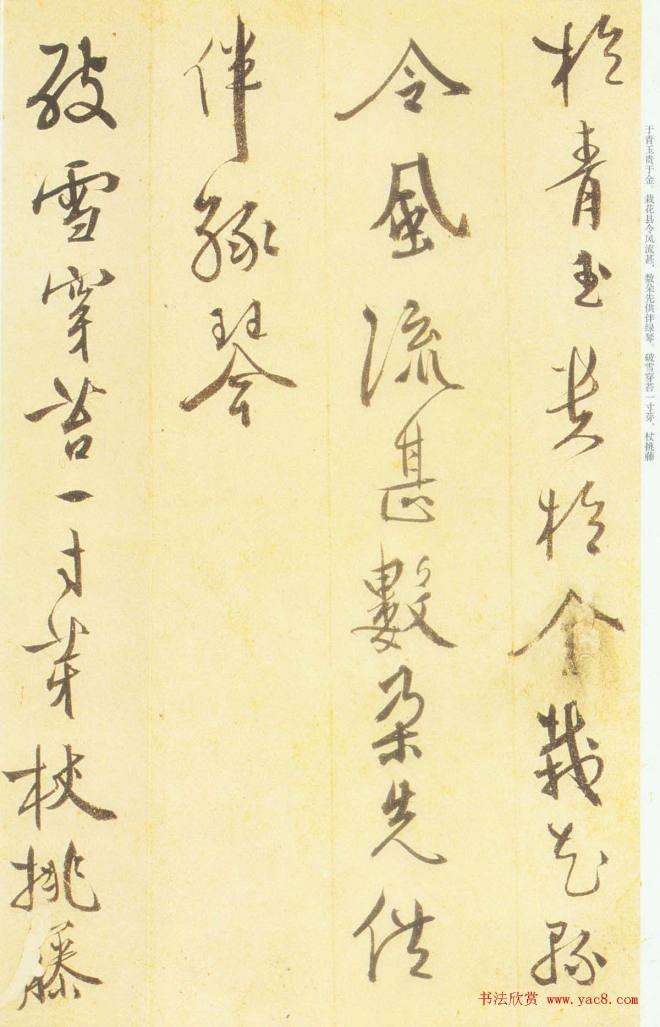 於青玉貴於金栽花縣
令風流甚數朵先供
伴綠琴
破雪穿苔一寸芽杖挑藤
于青玉贵于金。栽花县令风流甚，数朵先供伴绿琴。破雪穿苔一寸芽，杖挑藤
书法欣赏 www.yac8.com